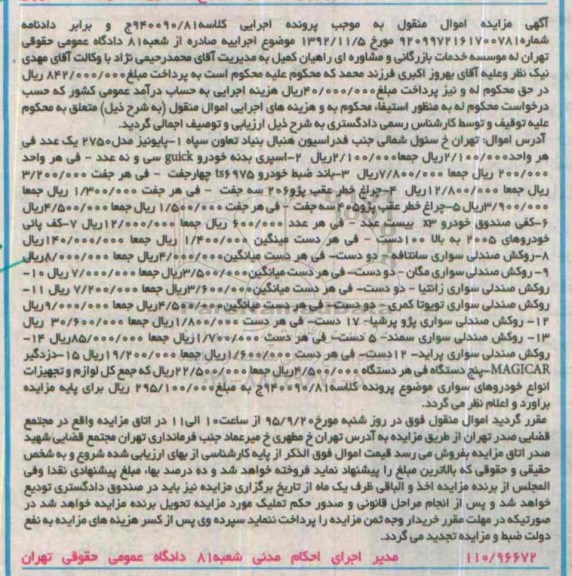 آگهی مزایده اموال منقول به موجب پرونده اجرایی کلاسه۹۴۰۰۹۰/۸۱ج و برابر دادنامه
شماره۹۲۰۹۹۷۲۱۶۱۷۰۰۷۸۱ مورخ ۱۳۹۲/۱۱/۵ موضوع اجراییه صادره از شعبه۸۱ دادگاه عمومی حقوقی
تهران له موسسه خدمات بازرگانی و مشاوره ای راهیان کمیل به مدیریت آقای محمدرحیمی نژاد با وکالت آقای مهدی
نیک نظر وعلیه آقای بهروز اکبری فرزند محمد که محکوم علیه محکوم است به پرداخت مبلغ۸۴۲/۰۰۰/۰۰۰ ریال
در حق محکوم له و نیز پرداخت مبلغ۴۰/۰۰۰/۰۰۰ریال هزینه اجرایی به حساب درآمد عمومی کشور که حسب
درخواست محکوم له به منظور استیفاء محکوم به و هزینه های اجرایی اموال منقول (به شرح ذیل) متعلق به محکوم
علیه توقیف و توسط کارشناس رسمی دادگستری به شرح ذیل ارزیابی و توصیف اجمالی گردید.
آدرس اموال: تهران خ سئول شمالی جنب فدراسیون هندبال بنیاد تعاون سپاه ۱-پایونیز مدل۲۷۵۰ یک عدد فی
هر واحد۲/۱۰۰/۰۰۰ریال جمعا۲/۱۰۰/۰۰۰ریال ۲-اسپری بدنه خودرو guick سی و نه عدد - فی هر واحد
۲۰۰/۰۰۰ ریال جمعا ۷/۸۰۰/۰۰۰ریال ۳-باند ضبط خودرو ts۶۹۷۵ چهارجفت - فی هر جفت ۳/۲۰۰/۰۰۰
ریال جمعا ۱۲/۸۰۰/۰۰۰ریال ۴-چراغ خطر عقب پژو۲۰۶ سه جفت - فی هر جفت ۱/۳۰۰/۰۰۰ ریال جمعا
۳/۹۰۰/۰۰۰ریال ۵-چراغ خطر عقب پژو۴۰۵ سه جفت - فی هر جفت ۱/۵۰۰/۰۰۰ ریال جمعا ۴/۵۰۰/۰۰۰ریال
۶-کفی صندوق خودرو x۳ بیست عدد - فی هر عدد ۶۰۰/۰۰۰ ریال جمعا ۱۲/۰۰۰/۰۰۰ریال ۷-کف پائی
خودروهای ۲۰۰۵ به بالا ۱۰۰دست - فی هر دست میانگین ۱/۴۰۰/۰۰۰ ریال جمعا ۱۴۰/۰۰۰/۰۰۰ریال
۸-روکش صندلی سواری سانتافه - دو دست- فی هر دست میانگین۴/۰۰۰/۰۰۰ریال جمعا ۸/۰۰۰/۰۰۰ریال
۹- روکش صندلی سواری مگان - دو دست- فی هر دست میانگین۳/۵۰۰/۰۰۰ریال جمعا ۷/۰۰۰/۰۰۰ ریال ۱۰-
روکش صندلی سواری زانتیا - دو دست- فی هر دست میانگین۳/۶۰۰/۰۰۰ریال جمعا ۷/۲۰۰/۰۰۰ ریال ۱۱-
روکش صندلی سواری تویوتا کمری - دو دست- فی هر دست میانگین۴/۵۰۰/۰۰۰ریال جمعا ۹/۰۰۰/۰۰۰ریال
۱۲- روکش صندلی سواری پژو پرشیا- ۱۷ دست- فی هر دست ۱/۸۰۰/۰۰۰ریال جمعا ۳۰/۶۰۰/۰۰۰ ریال
۱۳- روکش صندلی سواری سمند- ۵ دست- فی هر دست ۱/۷۰۰/۰۰۰ریال جمعا ۸۵/۰۰۰/۰۰۰ریال ۱۴-
روکش صندلی سواری پراید- ۱۲دست- فی هر دست ۱/۶۰۰/۰۰۰ریال جمعا ۱۹/۲۰۰/۰۰۰ریال ۱۵-دزدگیر
MAGICAR-پنج دستگاه فی هر دستگاه ۴/۵۰۰/۰۰۰ریال جمعا ۲۲/۵۰۰/۰۰۰ریال که جمع کل لوازم و تجهیزات
انواع خودروهای سواری موضوع پرونده کلاسه۹۴۰۰۹۰/۸۱ج به مبلغ۲۹۵/۱۰۰/۰۰۰ ریال برای پایه مزایده
برآورد و اعلام نظر می گردد.
مقرر گردید اموال منقول فوق در روز شنبه مورخ۹۵/۹/۲۰ از ساعت۱۰ الی۱۱ در اتاق مزایده واقع در مجتمع
قضایی صدر تهران از طریق مزایده به آدرس تهران خ مطهری خ میرعماد جنب فرمانداری تهران مجتمع قضایی شهید
صدر اتاق مزایده بفروش می رسد قیمت اموال فوق الذکر از پایه کارشناسی از بهای ارزیابی شده شروع و به شخص
حقیقی و حقوقی که بالاترین مبلغ را پیشنهاد نماید فروخته خواهد شد و ده درصد بها، مبلغ پیشنهادی نقدا وفی
المجلس از برنده مزایده اخذ و الباقی ظرف یک ماه از تاریخ برگزاری مزایده نیز باید در صندوق دادگستری تودیع
خواهد شد و پس از انجام مراحل قانونی و صدور حکم تملیک مورد مزایده تحویل برنده مزایده خواهد شد در
صورتیکه در مهلت مقرر خریدار وجه ثمن مزایده را پرداخت ننماید سپرده وی پس از کسر هزینه های مزایده به نفع
دولت ضبط و مزایده تجدید می گردد.
۱۱۰/۹۶۶۷۲ مدیر اجرای احکام مدنی شعبه۸۱ دادگاه عمومی حقوقی تهران